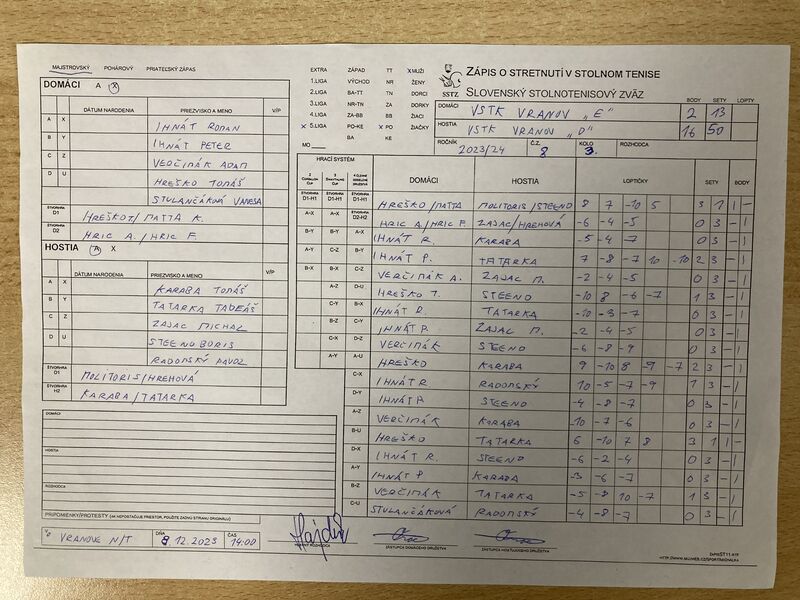 MAJSTROVSKÝ POHÁROVÝ PRIATEĽSKÝ ZÁPAS
DOMÁCI A X
DÁTUM NARODENIA PRIEZVISKO A MENO V/P
A X IHNÁT ROMAN
B Y IHNÁT PETER
C Z VERČIMÁK ADAM
D U HREŠKO TOMÁŠ
STULANČÁKOVÁ VANESA
ŠTVORHRA D1 HREŠKO T./MATTA K.
ŠTVORHRA D2 HRIC A./HRIC F.
HOSTIA A X
DÁTUM NARODENIA PRIEZVISKO A MENO V/P
A X KARABA TOMÁŠ
B Y TATARKA TADEÁŠ
C Z ZAJAC MICHAL
D U STEENO BORIS
RADOMSKÝ PAVOL
ŠTVORHRA D1 MOLITORIS/HREHOVÁ
ŠTVORHRA H2 KARABA/TATARKA
DOMÁCI
HOSTIA
ROZHODCA
PRIPOMIENKY/PROTESTY (AK NEPOSTAČUJE PRIESTOR, POUŽITE ZADNÚ STRANU ORIGINÁLU)
V VRANOVE N/T DŇA 8.12.2023 ČAS 14:00
EXTRA ZÁPAD TT X MUŽI
1.LIGA VÝCHOD NR ŽENY
2.LIGA BA-TT TN DORCI
3.LIGA NR-TN ZA DORKY
4.LIGA ZA-BB BB ŽIACI
X 5.LIGA PO-KE X PO ŽIAČKY
MO BA KE
SSTZ
ZÁPIS O STRETNUTÍ V STOLNOM TENISE
SLOVENSKÝ STOLNOTENISOVÝ ZVÄZ
BODY SETY LOPTY
DOMÁCI VSTK VRANOV „E" 2 13
HOSTIA VSTK VRANOV „D" 16 50
ROČNÍK 2023/24 Č.Z. 8 KOLO 3. ROZHODCA
HRACÍ SYSTÉM DOMÁCI HOSTIA LOPTIČKY SETY BODY
ŠTVORHRA D1-H1 ŠTVORHRA D1-H1 ŠTVORHRA D1-H1 HREŠKO/MATTA MOLITORIS/STEENO 8 7 -10 5 3 1 1 -
A-X A-X ŠTVORHRA D2-H2 HRIC A./HRIC F. ZAJAC/HREHOVÁ -6 -4 -5 0 3 - 1
B-Y B-Y A-X IHNÁT R. KARABA -5 -4 -7 0 3 - 1
A-Y C-Z B-Y IHNÁT P. TATARKA 7 -8 -7 10 -10 2 3 - 1
B-X B-X C-Z VERČIMÁK A. ZAJAC M. -2 -4 -5 0 3 - 1
A-Z D-U HREŠKO T. STEENO -10 8 -6 -7 1 3 - 1
C-Y B-X IHNÁT R. TATARKA -10 -3 -7 0 3 - 1
B-Z C-Y IHNÁT P. ZAJAC M. -2 -4 -5 0 3 - 1
C-X D-Z VERČIMÁK STEENO -6 -8 -9 0 3 - 1
A-Y A-U HREŠKO KARABA 9 -10 8 -9 -7 2 3 - 1
C-X IHNÁT R RADOMSKÝ 10 -5 -7 -9 1 3 - 1
D-Y IHNÁT P STEENO -4 -8 -7 0 3 - 1
A-Z VERČIMÁK KARABA -10 -7 -6 0 3 - 1
B-U HREŠKO TATARKA 6 -10 7 8 3 1 1 -
D-X IHNÁT R. STEENO -6 -2 -4 0 3 - 1
A-Y IHNÁT P KARABA -3 -6 -7 0 3 - 1
B-Z VERČIMÁK TATARKA -5 -8 10 -7 1 3 - 1
C-U STULANČÁKOVÁ RADOMSKÝ -4 -8 -7 0 3 - 1
ZÁSTUPCA DOMÁCEHO DRUŽSTVA